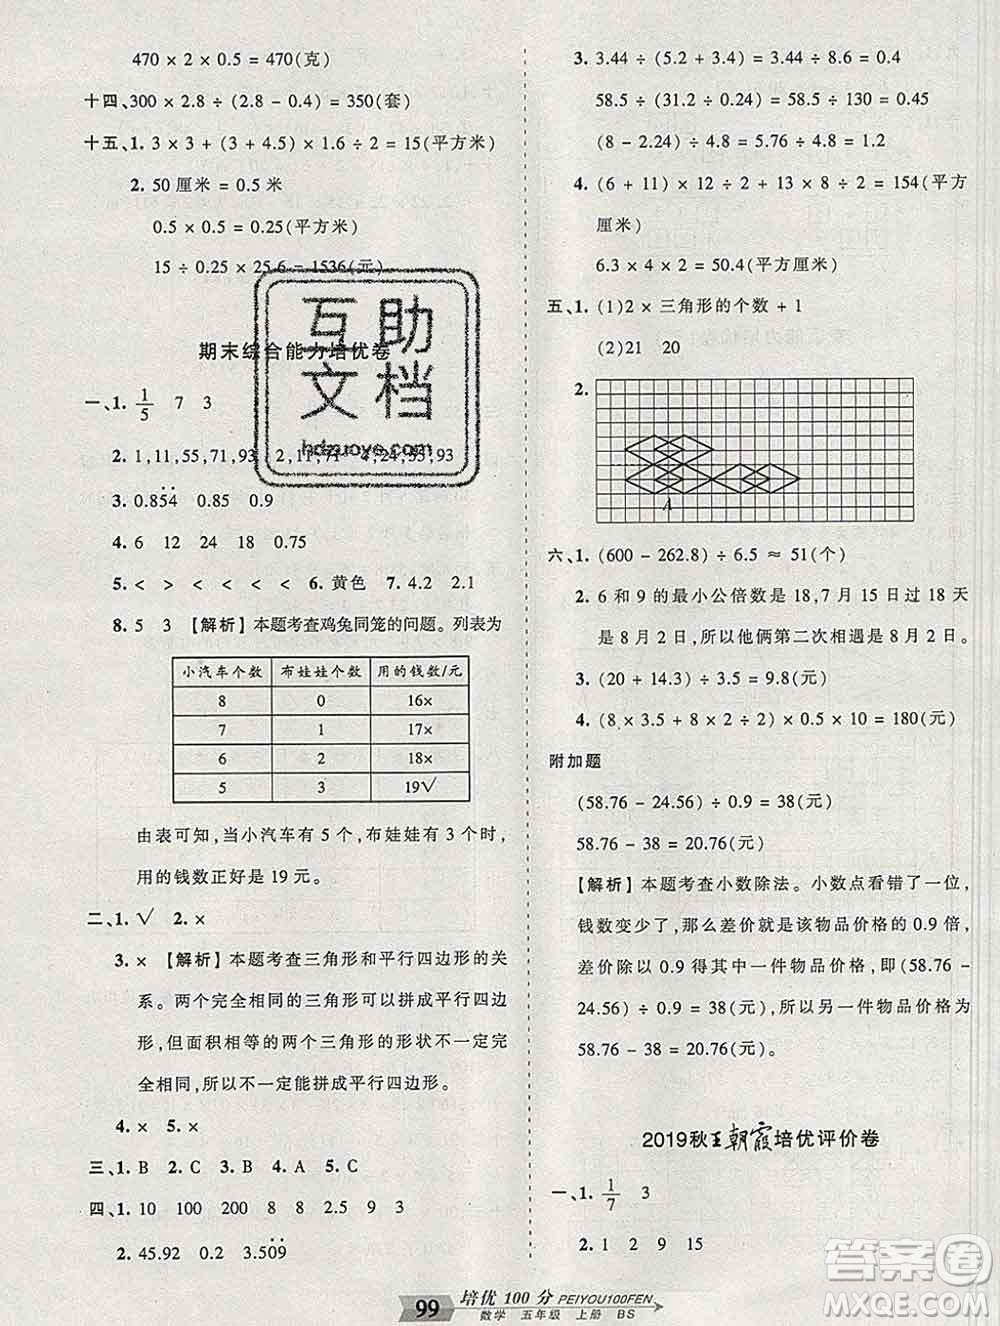 470 × 2 × 0.5 = 470(克)
十四、300 × 2.8 ÷ (2.8 - 0.4) = 350(套)
十五、1. 3 × 3 + (3 + 4.5) × 1.6 ÷ 2 = 15(平方米)
2. 50 厘米 = 0.5 米
0.5 × 0.5 = 0.25(平方米)
15 ÷ 0.25 × 25.6 = 1536(元)
期末综合能力培优卷
一、1. 1/5 7 3
2. 1,11,55,71,93 2,11,71 4,24,55,93
3. 0.85̇4̇ 0.85 0.9
4. 6 12 24 18 0.75
5. < > < < < < 6. 黄色 7. 4.2 2.1
8. 5 3 【解析】本题考查鸡兔同笼的问题。列表为
小汽车个数 布娃娃个数 用的钱数/元
8 0 16×
7 1 17×
6 2 18×
5 3 19√
由表可知,当小汽车有 5 个,布娃娃有 3 个时,
用的钱数正好是 19 元。
二、1. √ 2. ×
3. × 【解析】本题考查三角形和平行四边形的关
系。两个完全相同的三角形可以拼成平行四边
形,但面积相等的两个三角形的形状不一定完
全相同,所以不一定能拼成平行四边形。
4. × 5. ×
三、1. B 2. C 3. B 4. A 5. B
四、1. 10 100 200 8 8 2 3
2. 45.92 0.2 3.50̇9̇
3. 3.44 ÷ (5.2 + 3.4) = 3.44 ÷ 8.6 = 0.4
58.5 ÷ (31.2 ÷ 0.24) = 58.5 ÷ 130 = 0.45
(8 - 2.24) ÷ 4.8 = 5.76 ÷ 4.8 = 1.2
4. (6 + 11) × 12 ÷ 2 + 13 × 8 ÷ 2 = 154(平方
厘米)
6.3 × 4 × 2 = 50.4(平方厘米)
五、1. (1)2 × 三角形的个数 + 1
(2)21 20
2.
A
六、1. (600 - 262.8) ÷ 6.5 ≈ 51(个)
2. 6 和 9 的最小公倍数是 18,7 月 15 日过 18 天
是 8 月 2 日,所以他俩第二次相遇是 8 月 2 日。
3. (20 + 14.3) ÷ 0.7 = 49(元)
4. (8 × 3.5 + 8 × 2 ÷ 2) × 0.5 × 10 = 180(元)
附加题
(58.76 - 24.56) ÷ 0.9 = 38(元)
58.76 - 38 = 20.76(元)
【解析】本题考查小数除法。小数点看错了一位,
钱数变少了,那么差价就是该物品价格的 0.9 倍,
差价除以 0.9 得其中一件物品价格,即(58.76 -
24.56) ÷ 0.9 = 38(元),所以另一件物品价格为
58.76 - 38 = 20.76(元)。
2019秋王朝霞培优评价卷
一、1. 1/7 3
2. 1 2 9 15
99 培优 100 分 PEIYOU100FEN
数学 五年级 上册 BS
互助
文档
hdzuoye.com
答案圈
MXQE.COM